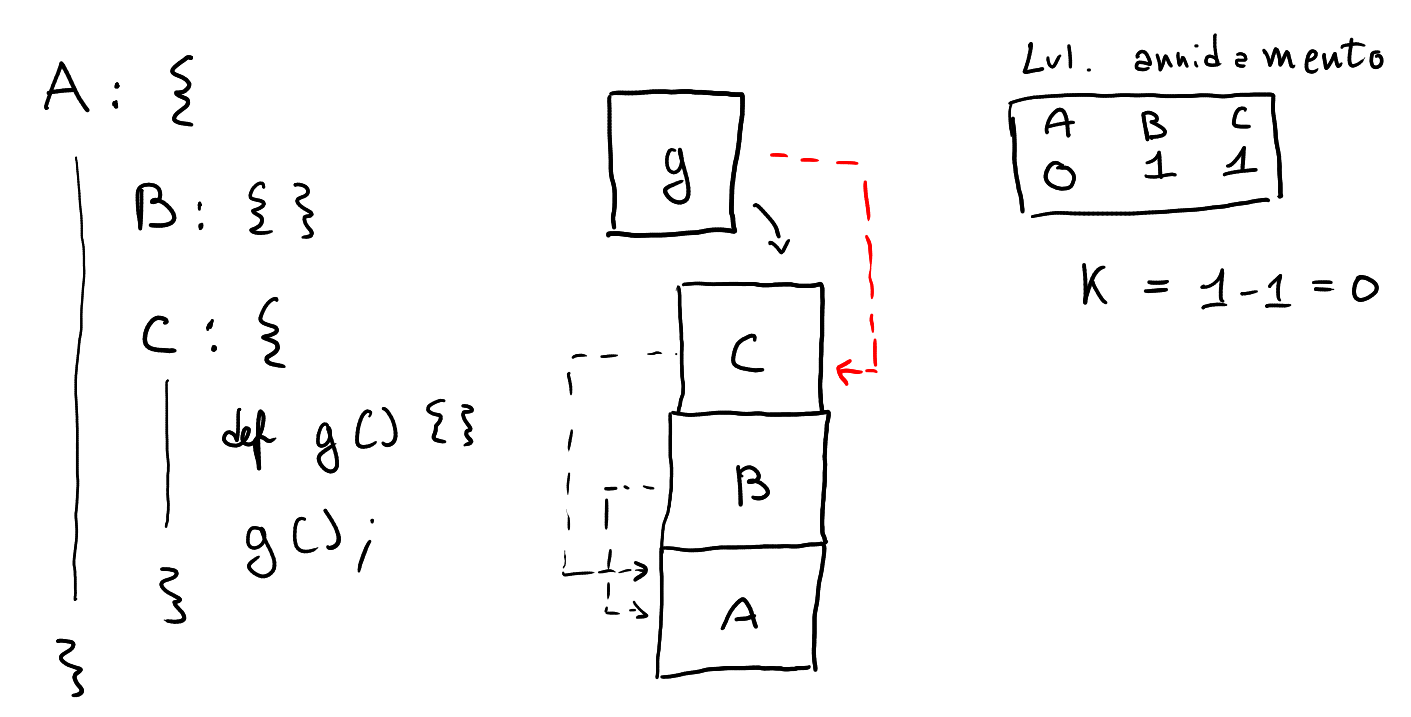 A: {
B: { }
C: {
def g() {}
g();
}
}
g
C
B
A
Lvl. annidamento
A B C
0 1 1
K = 1-1 = 0